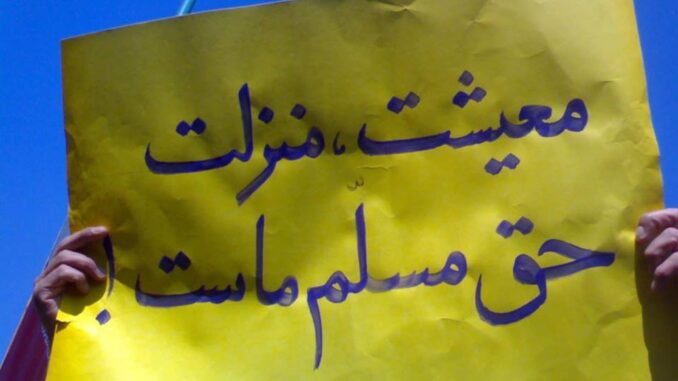 معیشت، منزلت
حق مسلّم ماست!